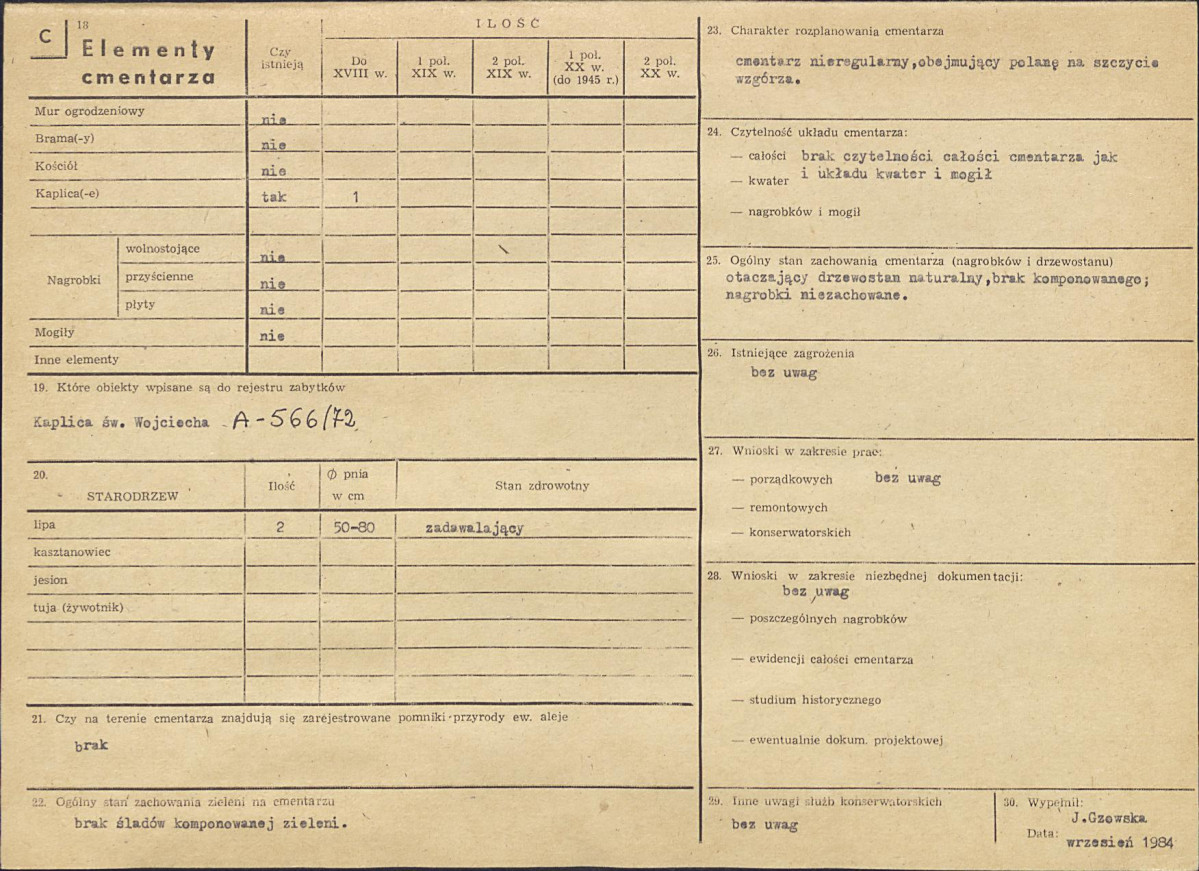 C
18
Elementy
cmentarza
Czy
istnieją
ILOŚĆ
Do
XVIII w.
1 poł.
XIX w.
2 poł.
XIX w.
1 poł.
XX w.
(do 1945 r.)
2 poł.
XX w.
Mur ogrodzeniowy nie
Brama(-y) nie
Kościół nie
Kaplica(-e) tak 1
Nagrobki
wolnostojące nie
przyścienne nie
płyty nie
Mogiły nie
Inne elementy
19. Które obiekty wpisane są do rejestru zabytków
Kaplica św. Wojciecha - A-566/72
20.
STARODRZEW
Ilość
Ø pnia
w cm
Stan zdrowotny
lipa 2 50-80 zadawalający
kasztanowiec
jesion
tuja (żywotnik)
21. Czy na terenie cmentarza znajdują się zarejestrowane pomniki przyrody ew. aleje
brak
22. Ogólny stan zachowania zieleni na cmentarzu
brak śladów komponowanej zieleni.
23. Charakter rozplanowania cmentarza
cmentarz nieregularny,obejmujący polanę na szczycie
wzgórza.
24. Czytelność układu cmentarza:
— całości brak czytelności całości cmentarza jak
— kwater i układu kwater i mogił
— nagrobków i mogił
25. Ogólny stan zachowania cmentarza (nagrobków i drzewostanu)
otaczający drzewostan naturalny,brak komponowanego;
nagrobki niezachowane.
26. Istniejące zagrożenia
bez uwag
27. Wnioski w zakresie prac:
— porządkowych bez uwag
— remontowych
— konserwatorskich
28. Wnioski w zakresie niezbędnej dokumentacji:
bez uwag
— poszczególnych nagrobków
— ewidencji całości cmentarza
— studium historycznego
— ewentualnie dokum. projektowej
29. Inne uwagi służb konserwatorskich
bez uwag
30. Wypełnił:
J.Gzowska
Data:
wrzesień 1984